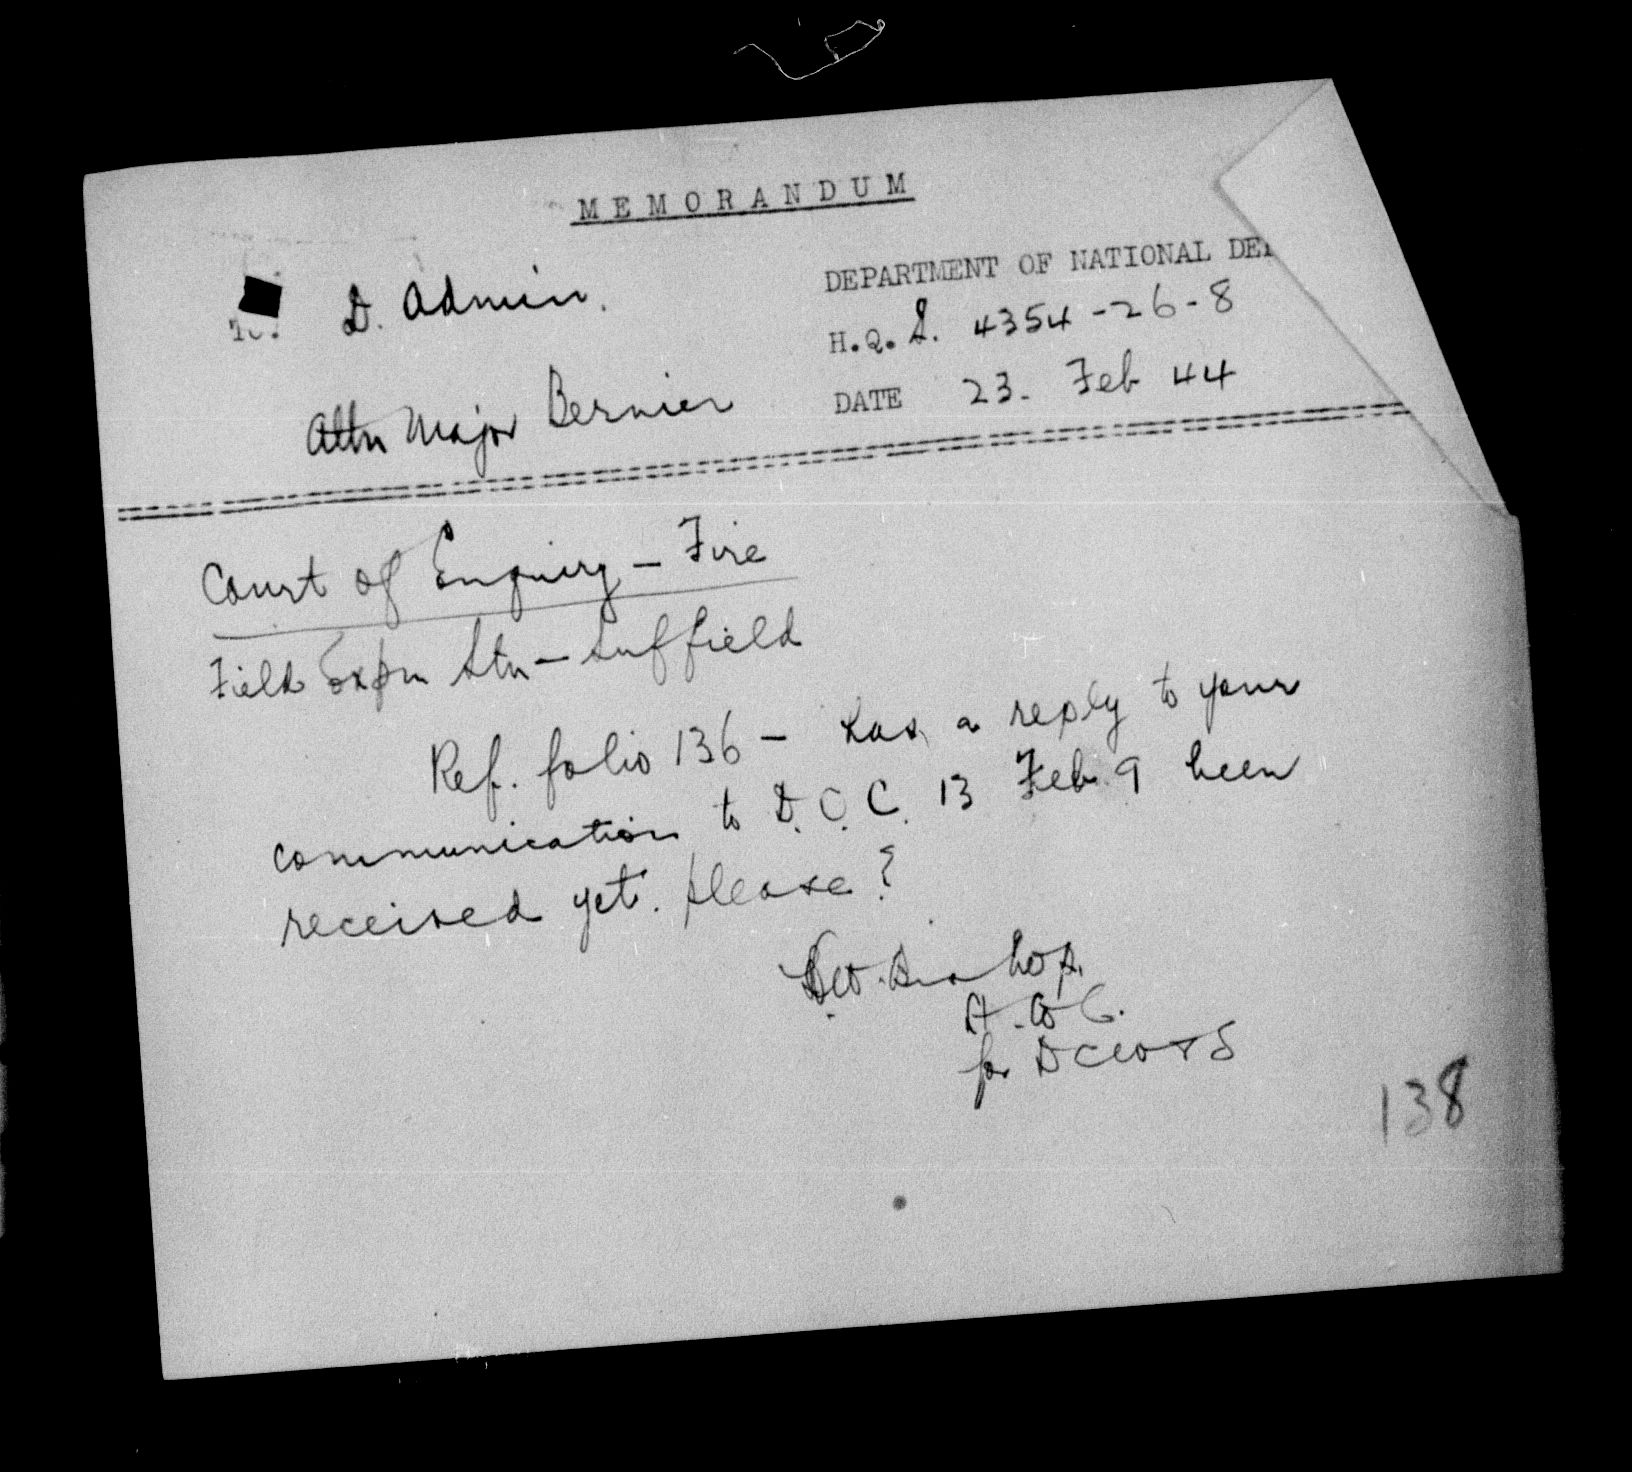 MEMORANDUM
To: D. Admin.
DEPARTMENT OF NATIONAL DE
H.Q. S. 4354-26-8
Attn Major Bernier
DATE 23. Feb 44
Court of Enquiry - Fire
Field Expm Stn - Suffield
Ref. folio 136 - has a reply to your
communication to D.O.C. 13 Feb. 9 been
received yet. please?
for DCW & S
138